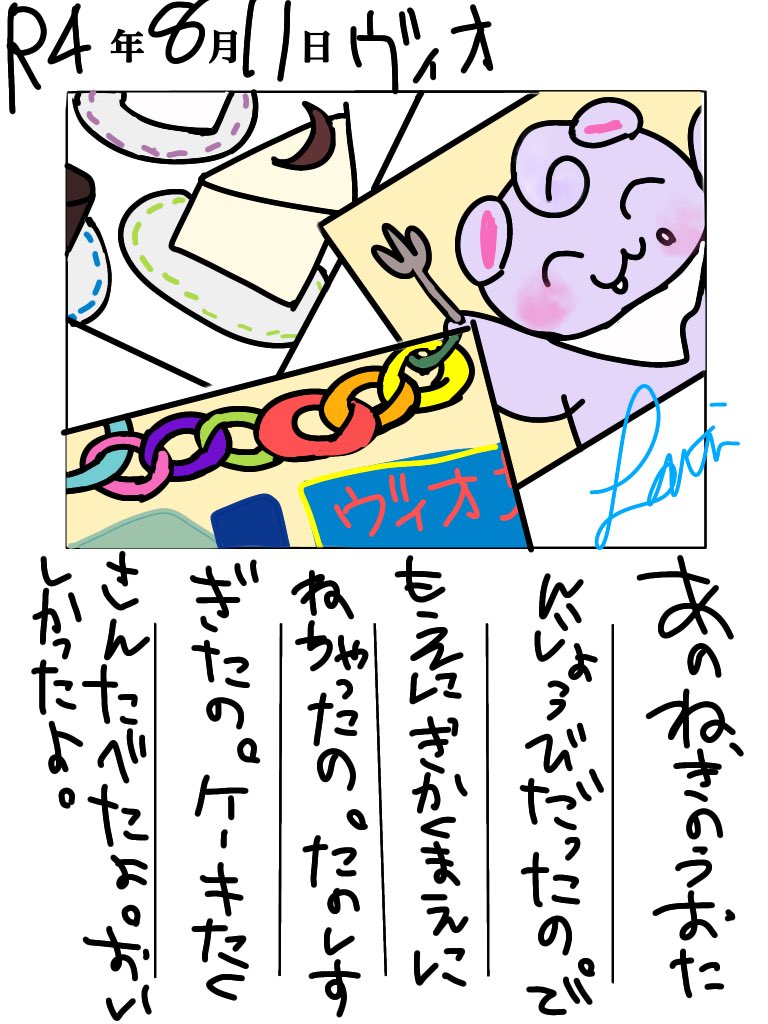 R4年8月11日 ヴィオ
ヴィオ
Lavi
あのね、きのうおた
んじょうびだったの。で
もえにぎかくまえに
ねちゃったの。たのしす
ぎたの。ケーキたく
さんたべたよ。おい
しかったよ。